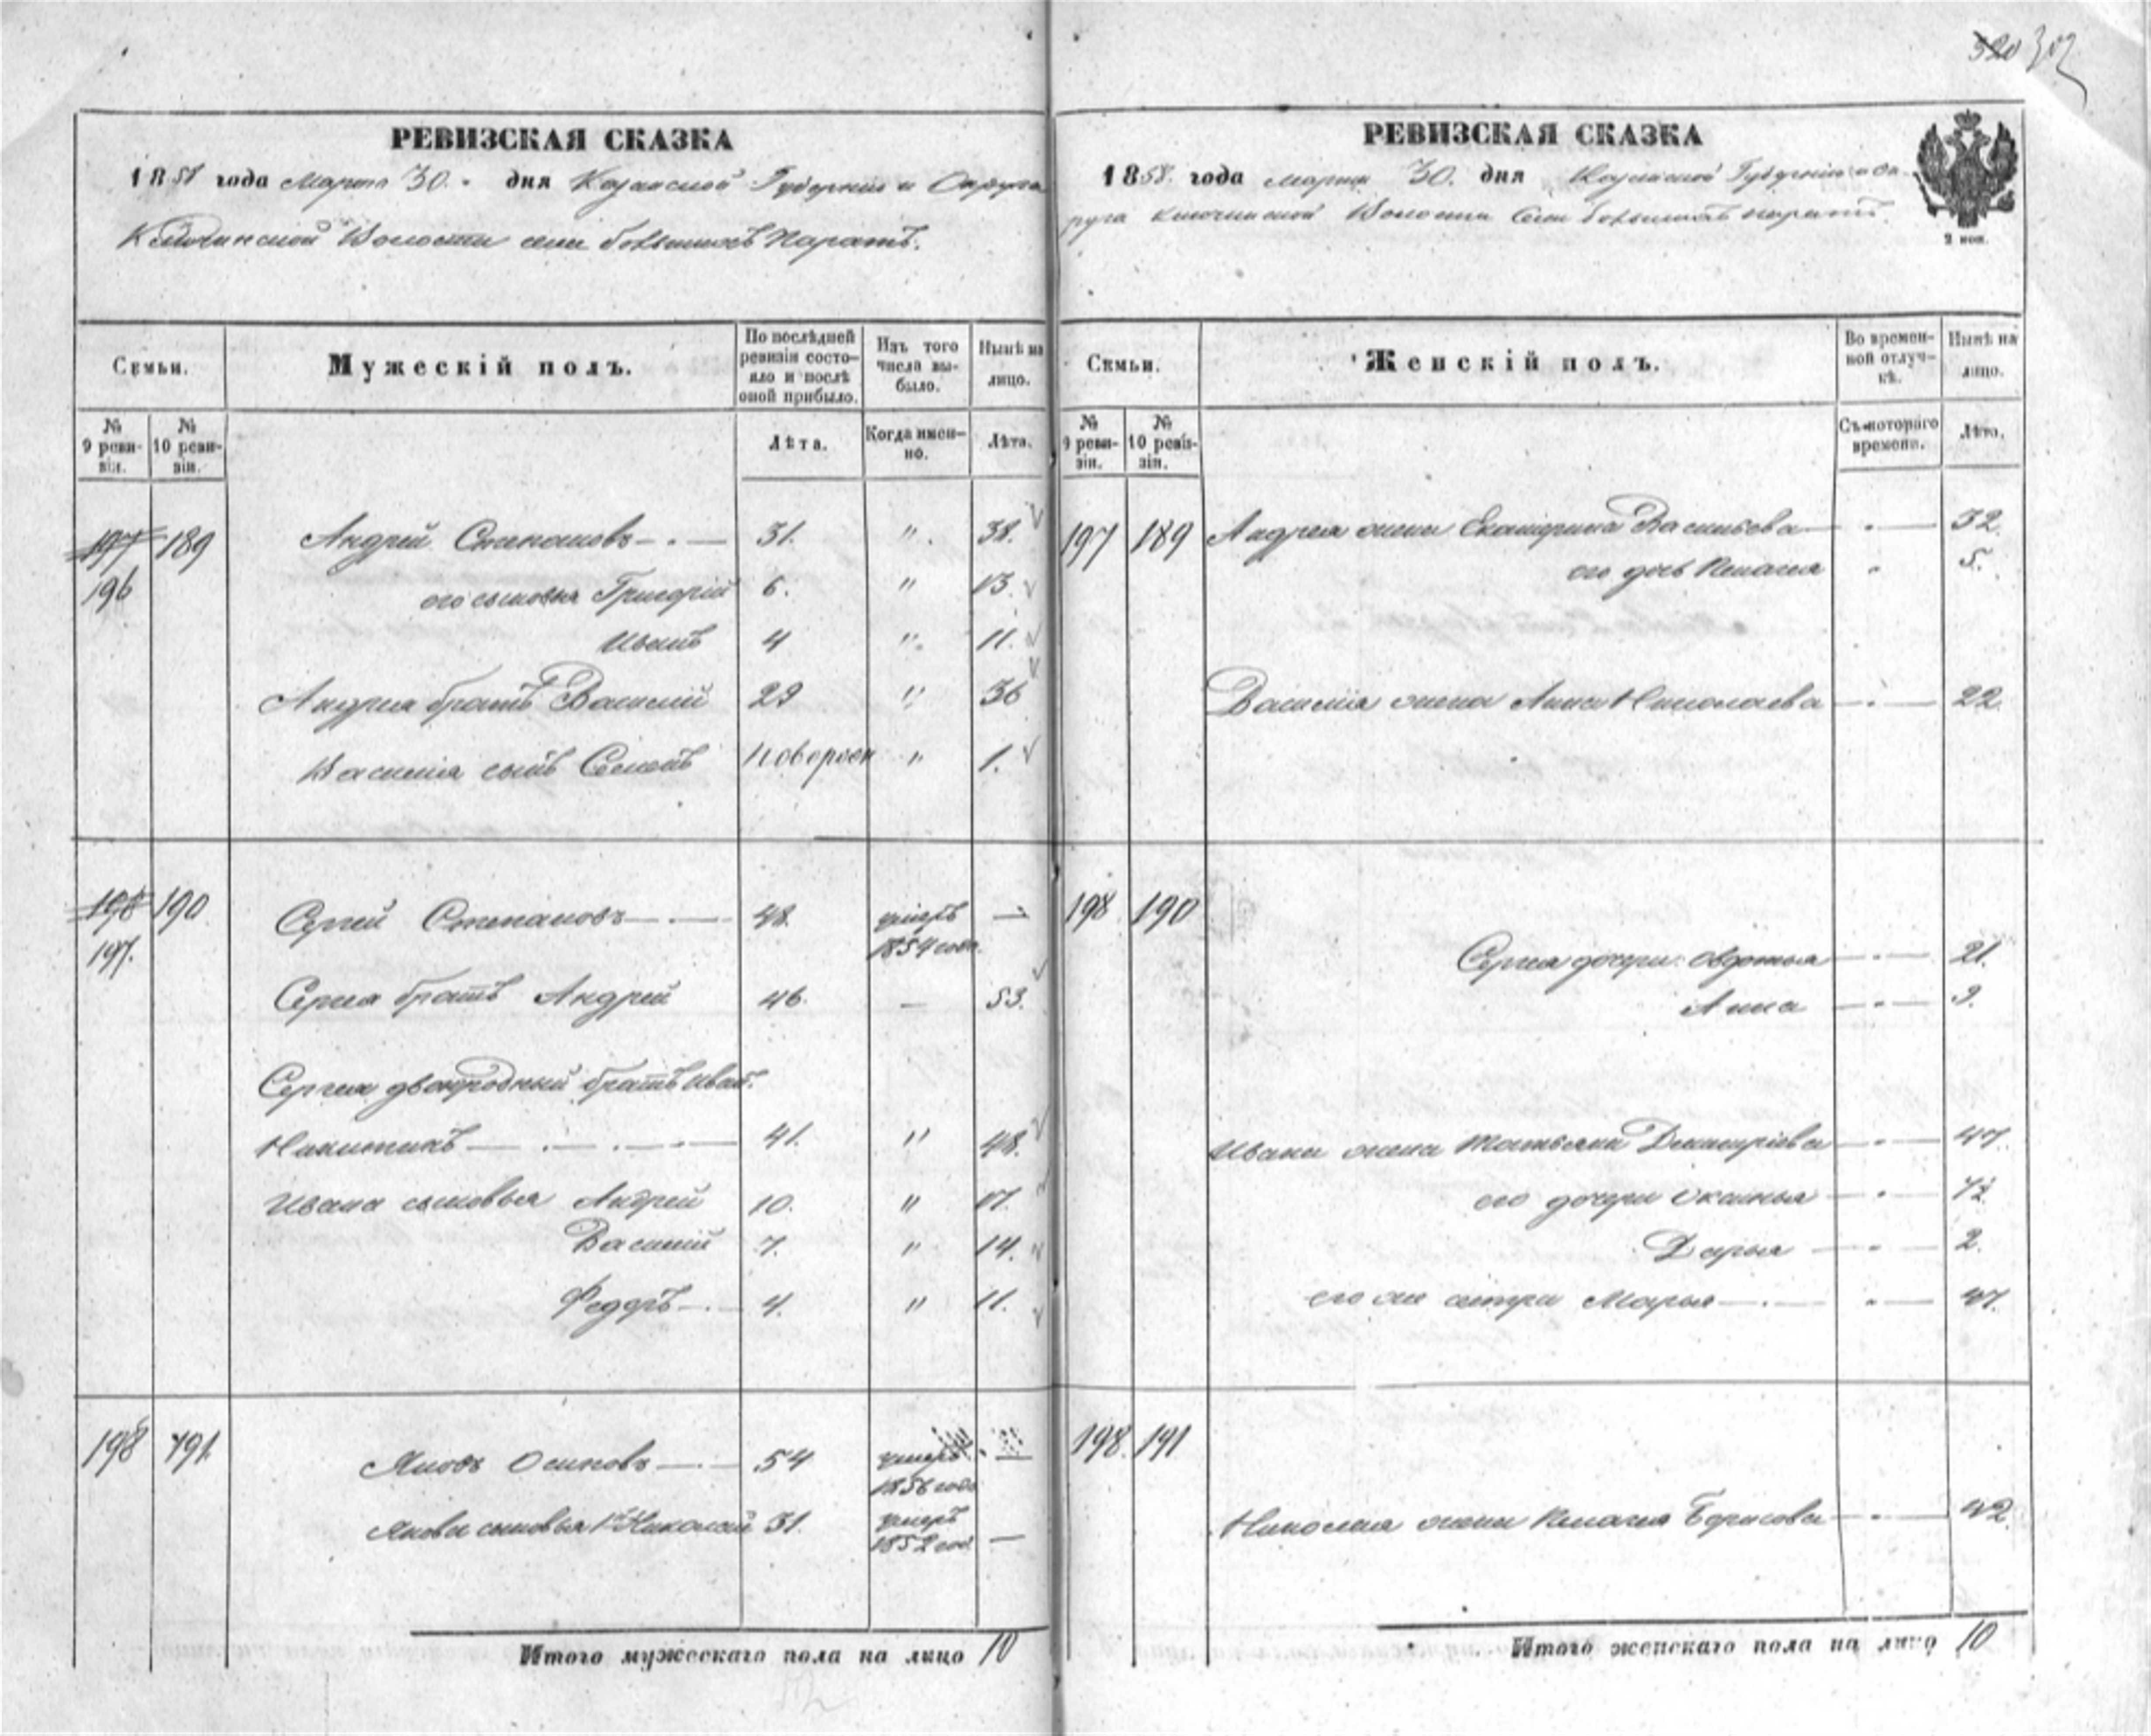 320 302
РЕВИЗСКАЯ СКАЗКА
1858 года Марта 30. дня Казанской Губернiи и Округа
Ключинской Волости села большихъ Паратъ.
Семьи.
Мужескiй полъ.
По послѣдней ревизiи состояло и послѣ оной прибыло.
Изъ того числа выбыло.
Нынѣ на лицо.
№ 9 ревизiи.
№ 10 ревизiи.
Лѣта.
Когда именно.
Лѣта.
197 189 Андрей Степановъ 31. " 38.
196 его сыновья Григорiй 6. " 13.
Иванъ 4 " 11.
Андрея братъ Василiй 29 " 36
Василiя сынъ Семенъ новорожд " 1.
198 190 Сергей Степановъ 48. умеръ —
197. 1854 года.
Сергея братъ Андрей 46. — 53.
Сергея двоюродный братъ Иван.
Никитинъ 41. " 48.
Ивана сыновья Андрей 10. " 17.
Василiй 7. " 14.
Федоръ 4. " 11.
198 191. Яковъ Осиповъ 54 умеръ —
1856 года
Якова сыновья 1й Николай 31. умеръ
1852 год —
Итого мужескаго пола на лицо 10
РЕВИЗСКАЯ СКАЗКА
1858. года марта 30. дня Казанской Губернiи и Ок-
руга Ключинской Волости Села большихъ паратъ.
2 коп.
Семьи.
Женскiй полъ.
Во временной отлучкѣ.
Нынѣ на лицо.
№ 9 ревизiи.
№ 10 ревизiи.
Съ котораго времени.
Лѣта.
197 189 Андрея жена Екатерина Васильева 32.
его дочь Пелагея 5.
Василiя жена Анна Николаева 22.
198 190
Сергея дочери Овдотья 21.
Анна 9.
Ивана жена Татьяна Димитрiева 47.
его дочери Оксинья 12
Дарья 2.
его же сестра Марья 47.
198. 191
Николая жена Пелагея Борисова 42.
Итого женскаго пола на лицо 10